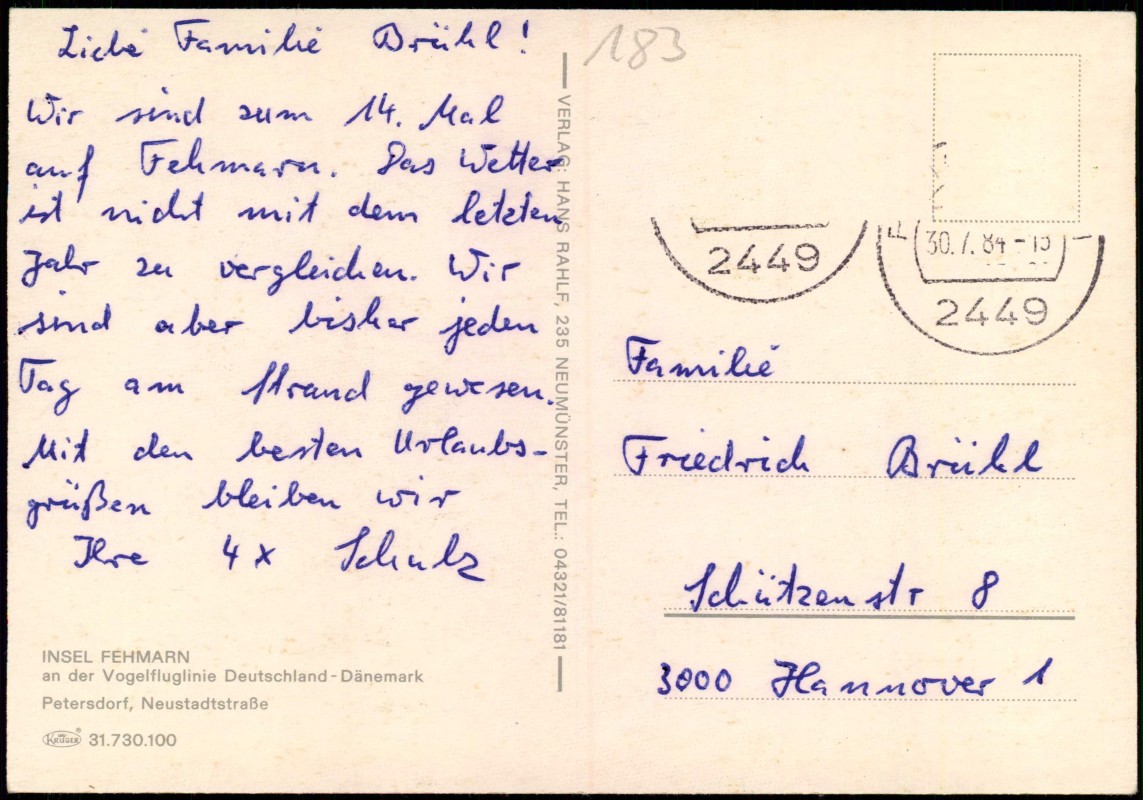 Liebe Familie Brühl!
Wir sind zum 14. Mal
auf Fehmarn. Das Wetter
ist nicht mit dem letzten
Jahr zu vergleichen. Wir
sind aber bisher jeden
Tag am Strand gewesen.
Mit den besten Urlaubs-
grüßen bleiben wir
Ihre 4x Schulz
INSEL FEHMARN
an der Vogelfluglinie Deutschland-Dänemark
Petersdorf, Neustadtstraße
KRÜGER 31.730.100
VERLAG: HANS RAHLF, 235 NEUMÜNSTER, TEL.: 04321/81181
183
2449
30.7.84-
2449
Familie
Friedrich Brühl
Schützenstr 8
3000 Hannover 1